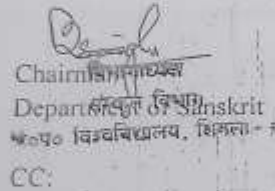 Chairman
Department of Sanskrit
संस्कृत विभाग
विश्वविद्यालय, शिमला -
CC: